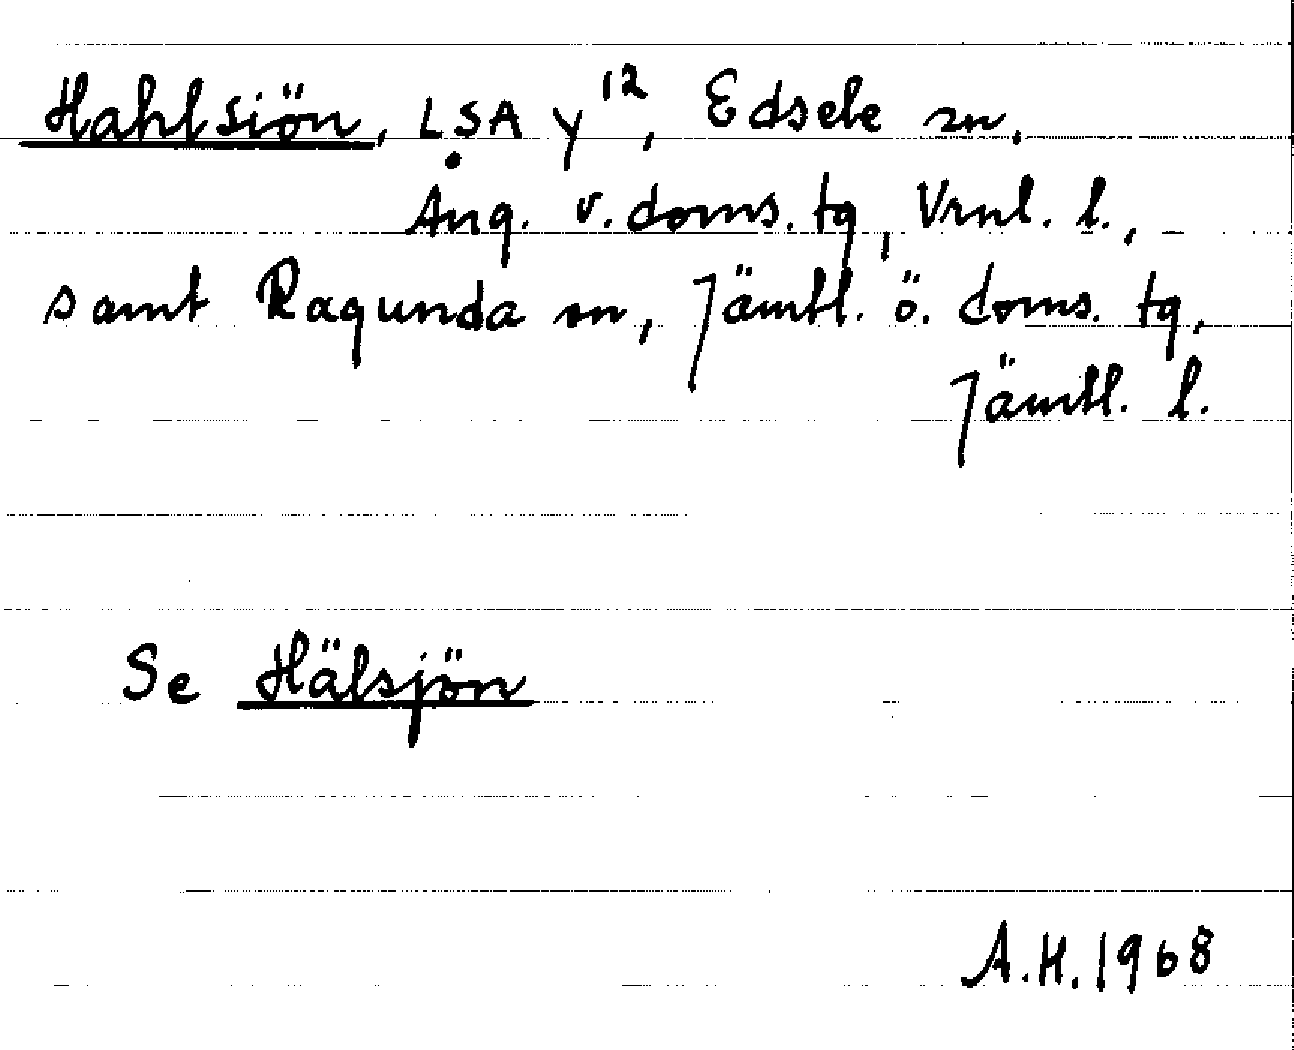 Hahlsiön, LSA Y 12, Edsele sn,
Ång. v. doms. tg, Vrnl. l.,
samt Ragunda sn, Jämtl. ö. doms. tg,
Jämtl. l.
Se Hälsjön
A.H. 1968